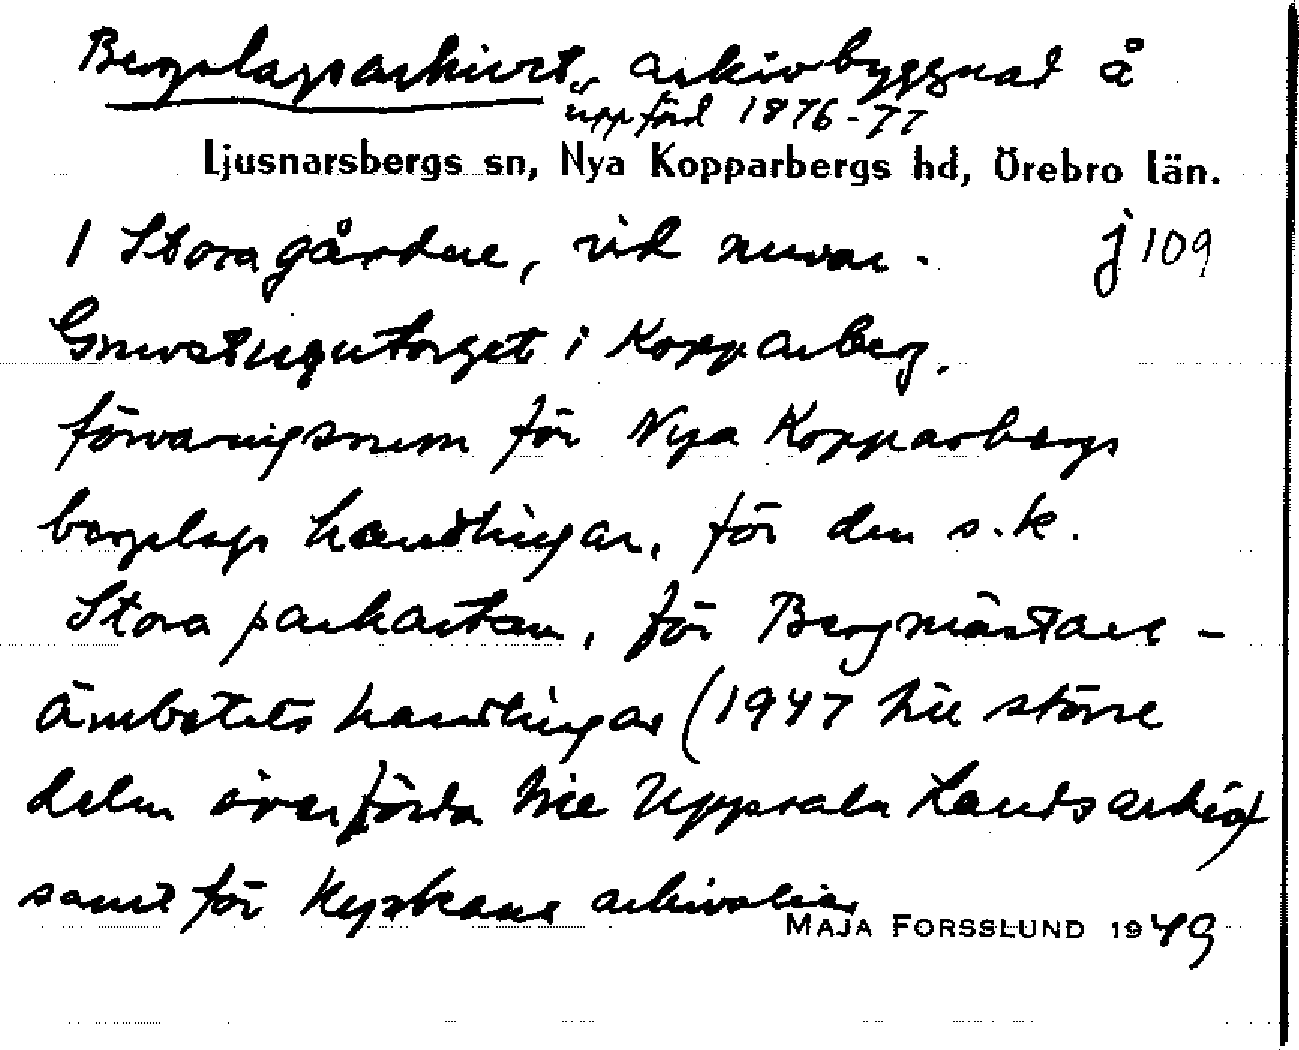 Bergslagsarkivet, arkivbyggnad å
uppförd 1876-77
Ljusnarsbergs sn, Nya Kopparbergs hd, Örebro län.
1 Storagården, vid nuvar- j109
Gruvstugutorget i Kopparberg.
förvaringsrum för Nya Kopparbergs
bergslags handlingar, för den s.k.
Stora parkartan, för Bergmästare-
ämbetets handlingar (1947 till större
delen överförda till Uppsala Landsarkiv)
samt för kyrkans arkivalier
MAJA FORSSLUND 1949